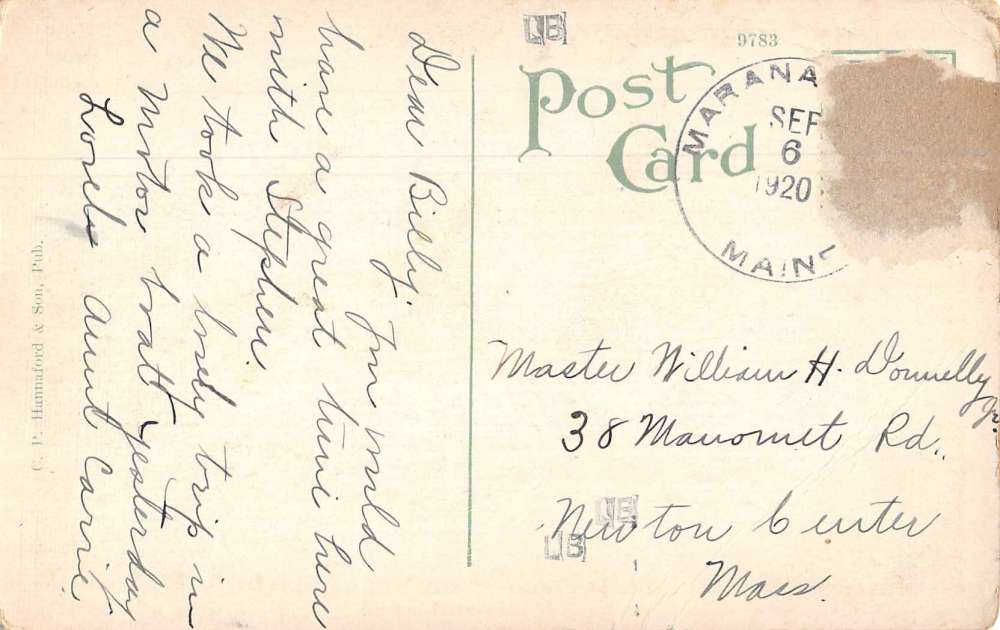 Dear Billy.
You would
have a great time here
with Stephen
We took a lovely trip in
a motor boat yesterday
Lovely Aunt Carrie.
C. P. Hannaford & Son, Pub.
LB
9783
Post
Card
MARANA
SEP
6
1920
MAINE
Master William H. Donnelly
Jr.
38 Manomet Rd.
Newton Center
Mass.
LB
LB